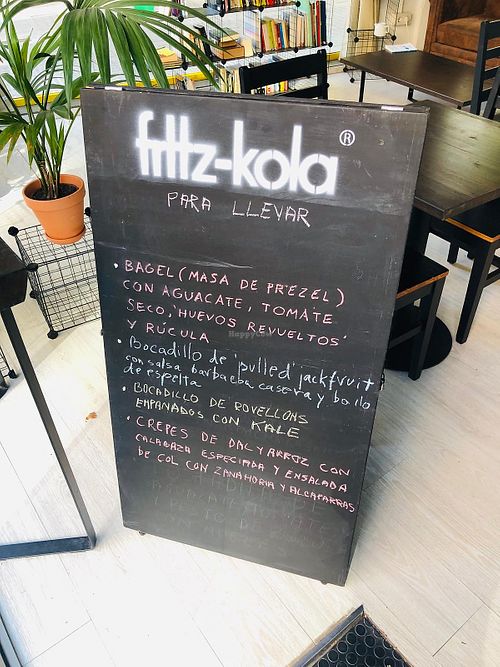 fritz-kola®
PARA LLEVAR
• BAGEL (MASA DE PREZEL)
CON AGUACATE, TOMATE
SECO, 'HUEVOS REVUELTOS'
Y RÚCULA
• Bocadillo de 'pulled' jackfruit
con salsa barbacoa casera y bollo
de espelta
• BOCADILLO DE ROVELLONS
EMPANADOS CON KALE
• CREPES DE DAL Y ARROZ CON
CALABAZA ESPECIADA Y ENSALADA
DE COL CON ZANAHORIA Y ALCAPARRAS